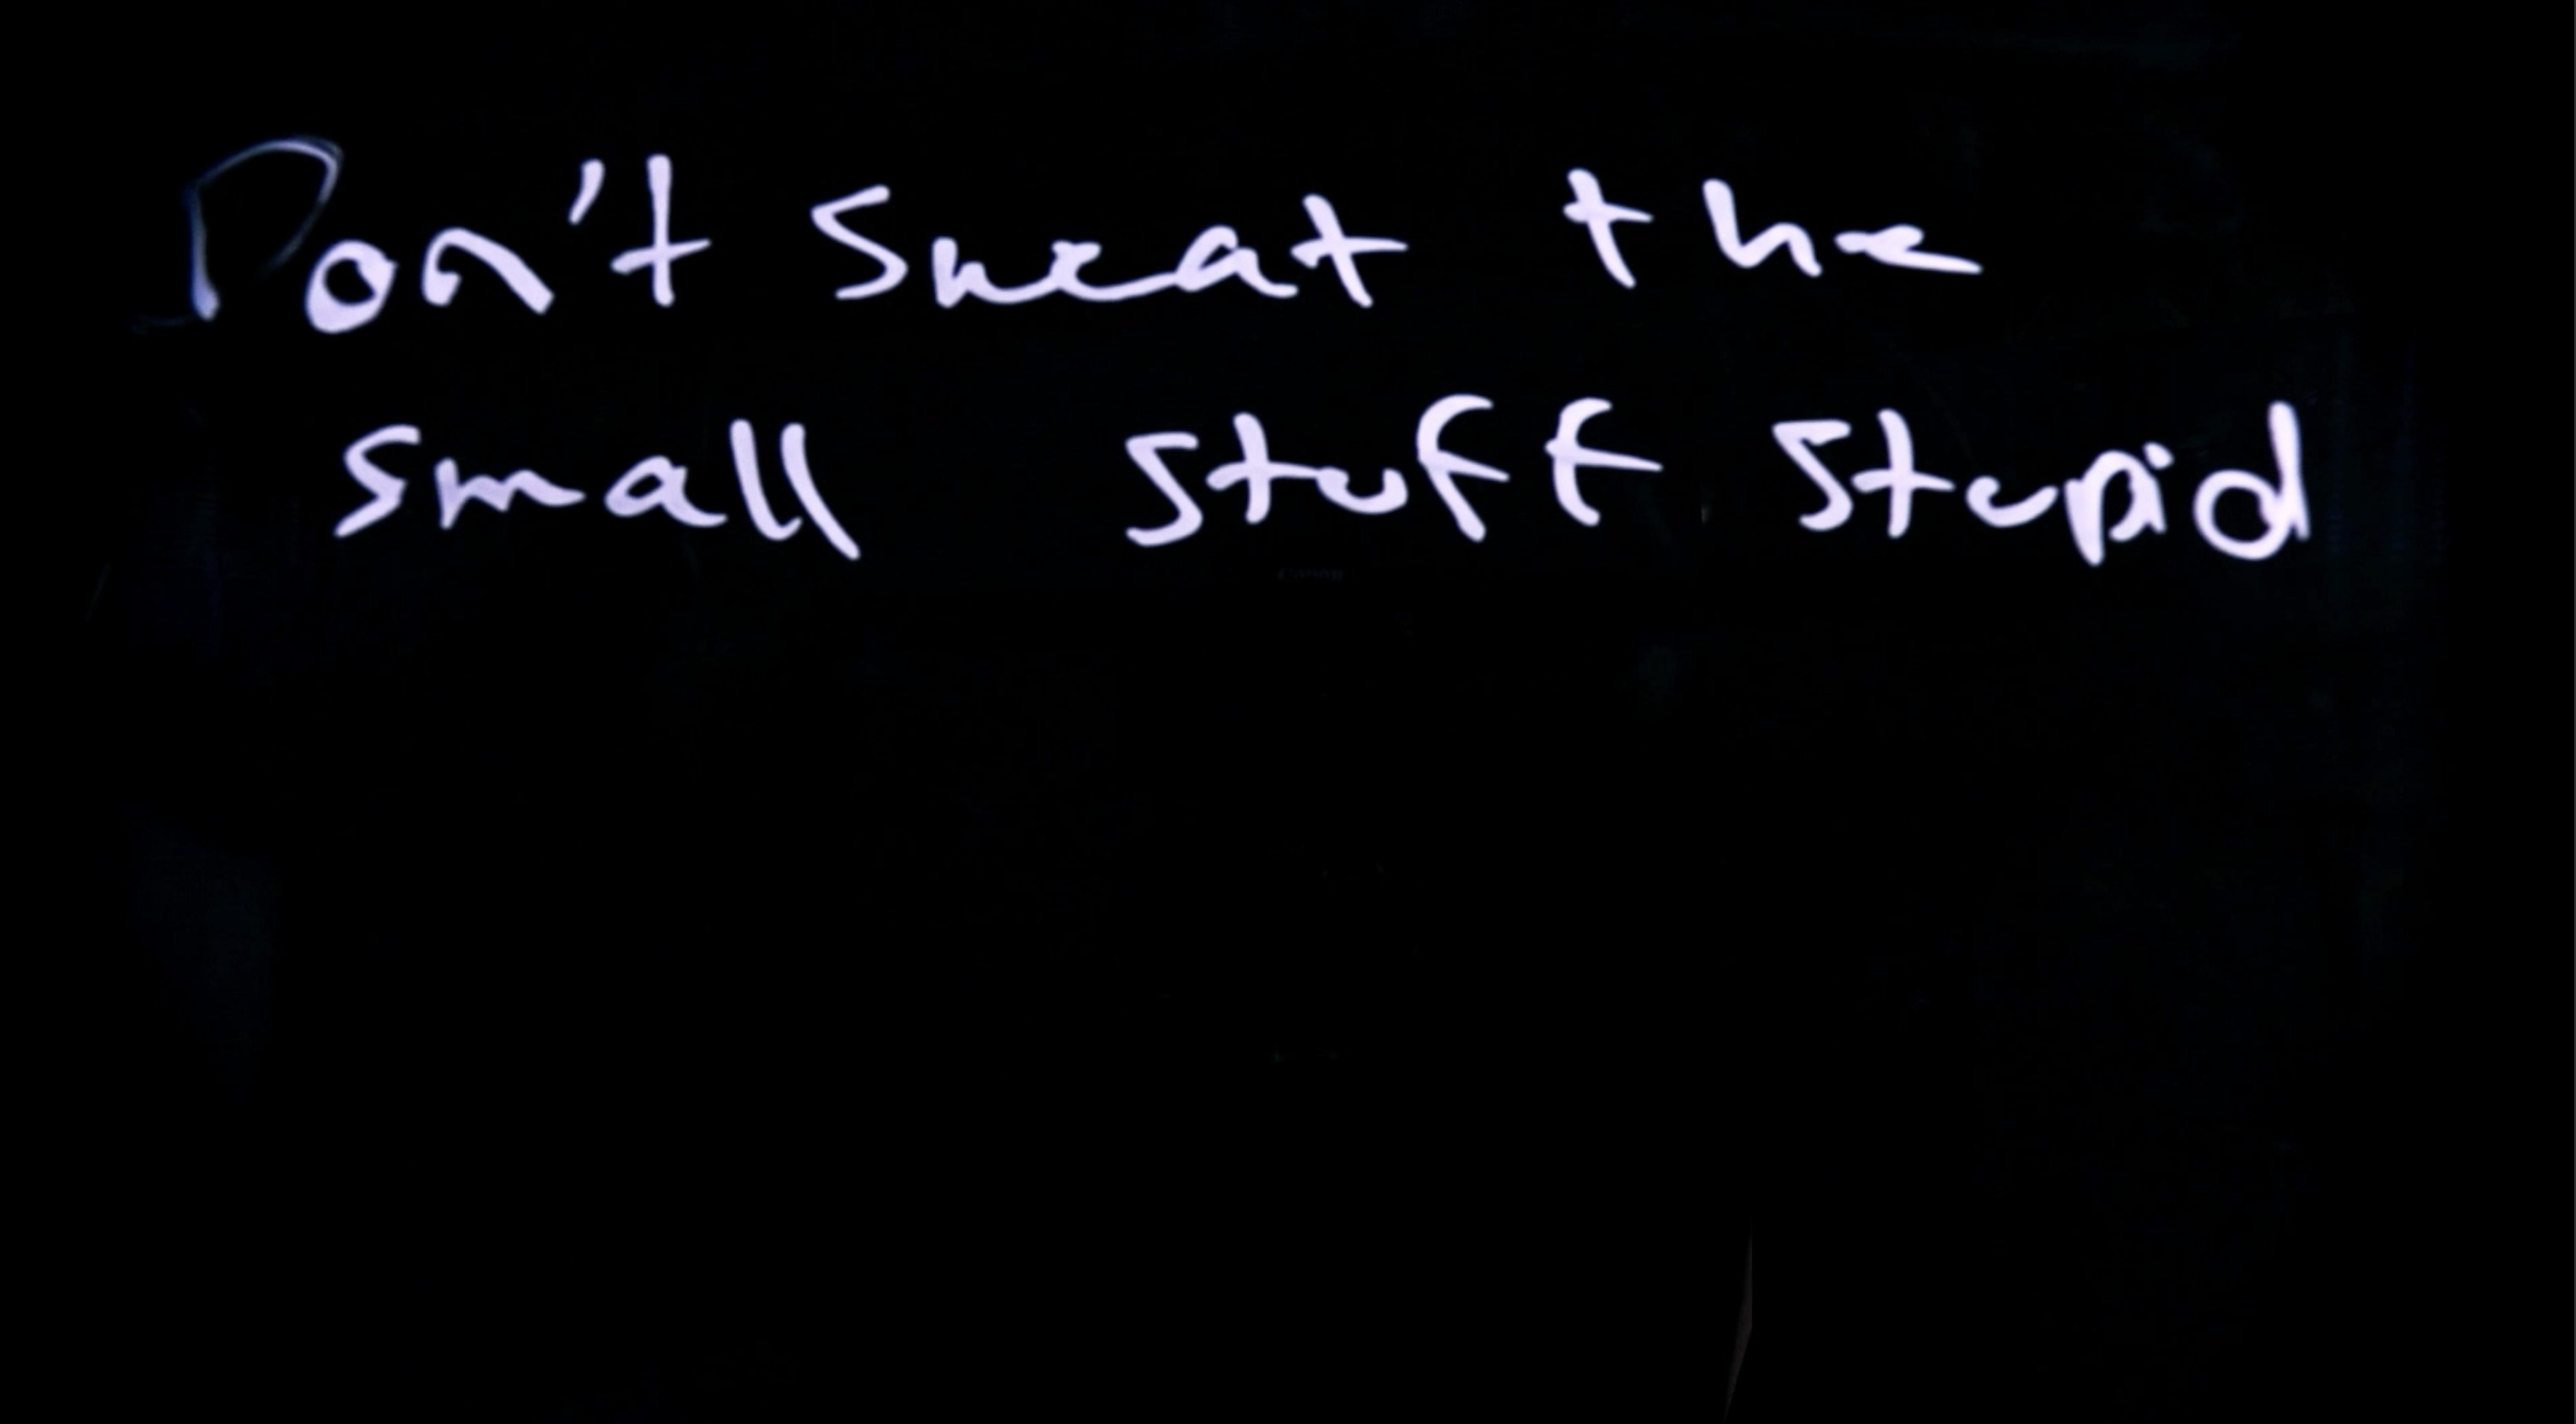 Don't sweat the
small stuff stupid